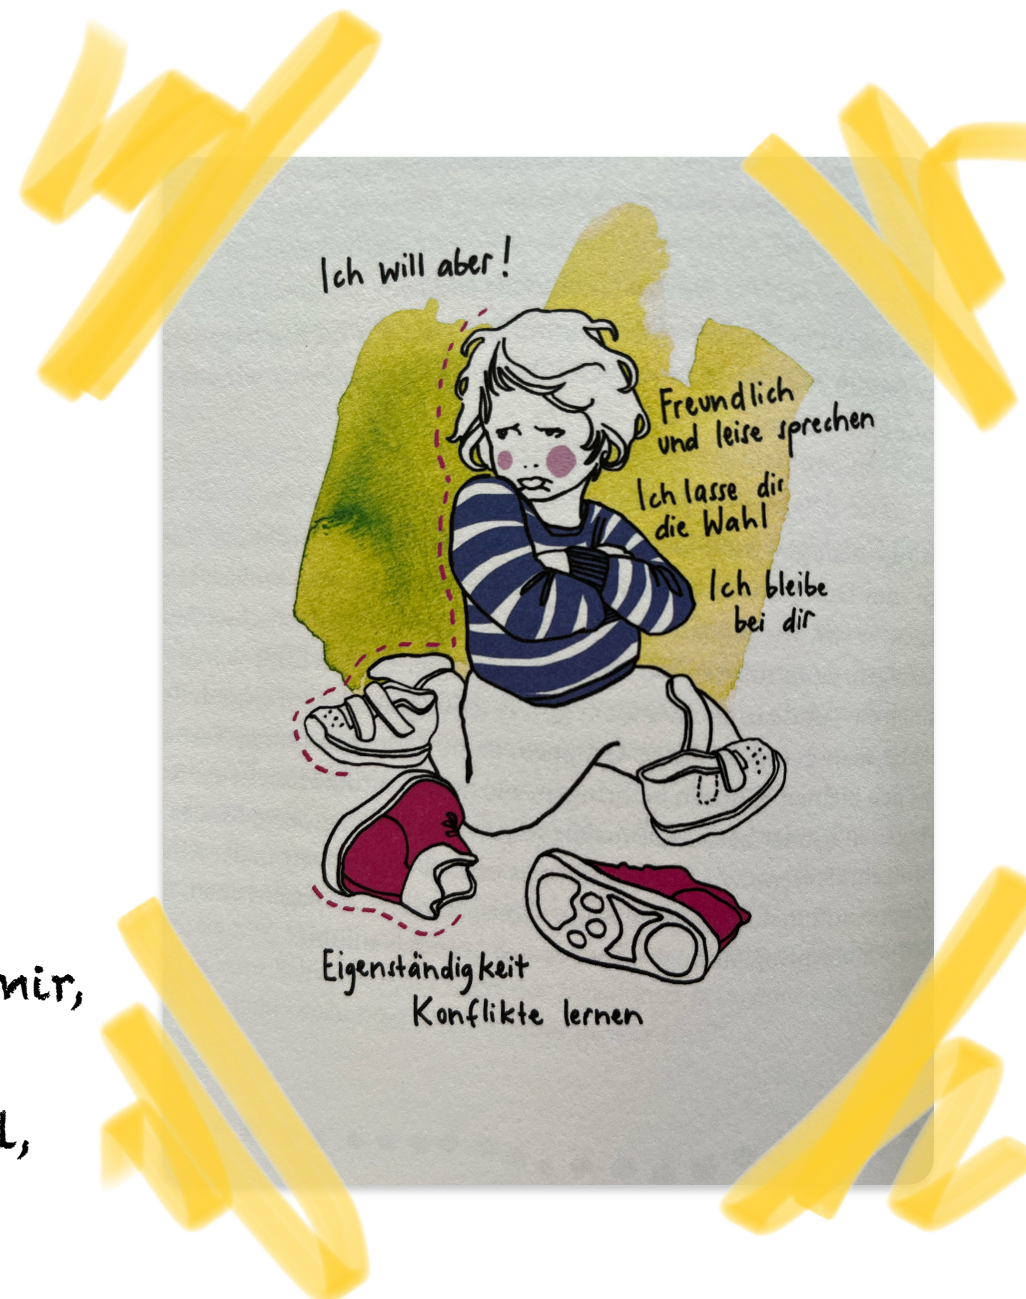 Ich will aber!
Freundlich
und leise sprechen
Ich lasse dir
die Wahl
Ich bleibe
bei dir
mir,
Eigenständigkeit
Konflikte lernen